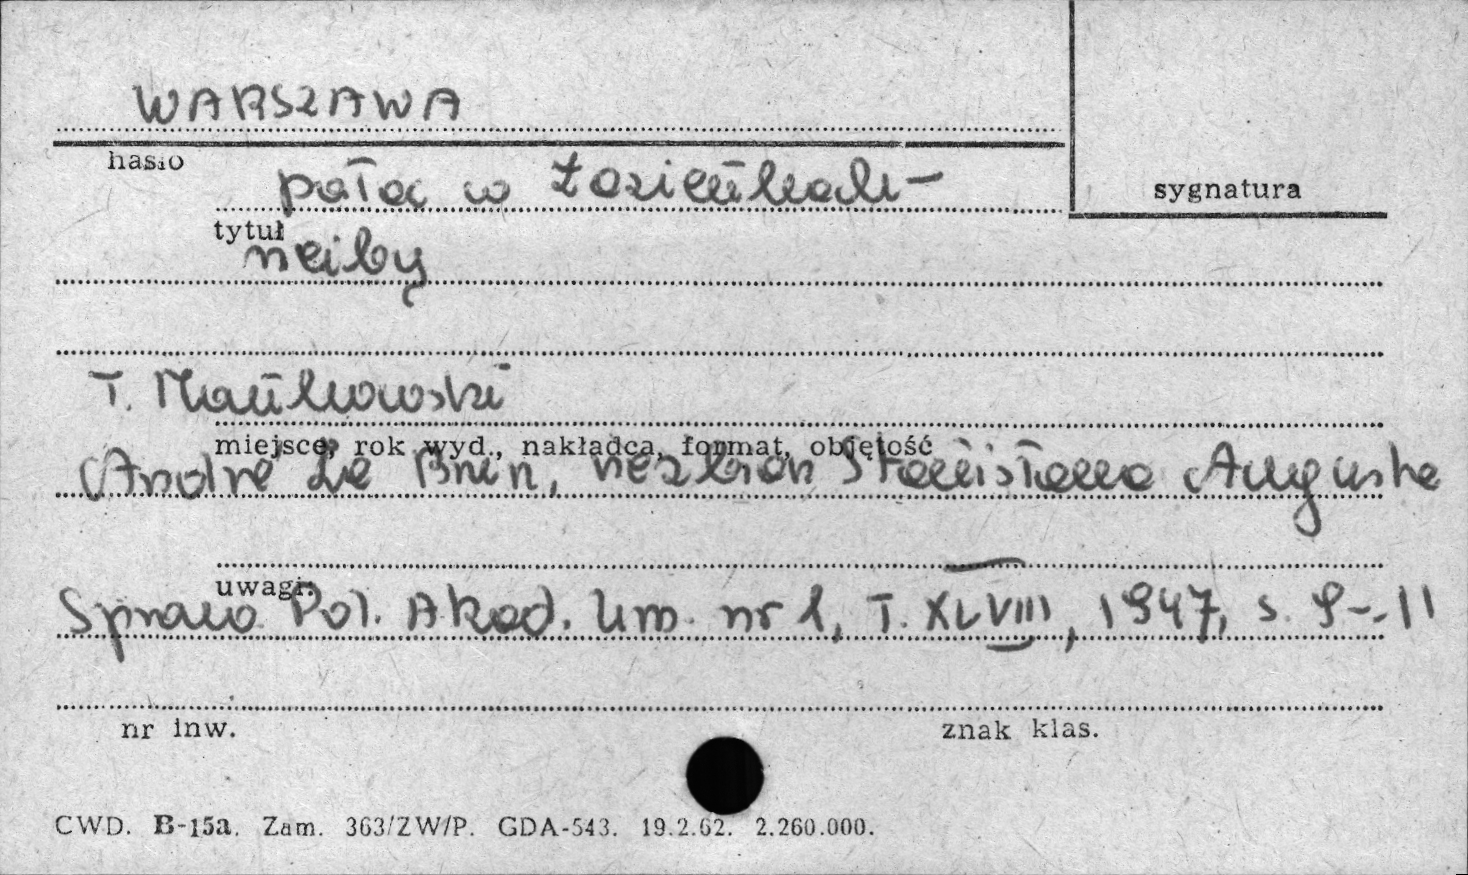 WARSZAWA
hasło
pałac w Łazienkach –
sygnatura
tytuł
rzeźby
T. Mańkowski
miejsce, rok wyd., nakładca, format, objętość
André Le Brun, rzeźbiarz Stanisława Augusta
uwagi:
Spraw. Pol. Akad. Um. nr 1, T. XLVIII, 1947, s. 9–11
nr inw.
znak klas.
CWD. B-15a. Zam. 363/ZW/P. GDA-543. 19.2.62. 2.260.000.